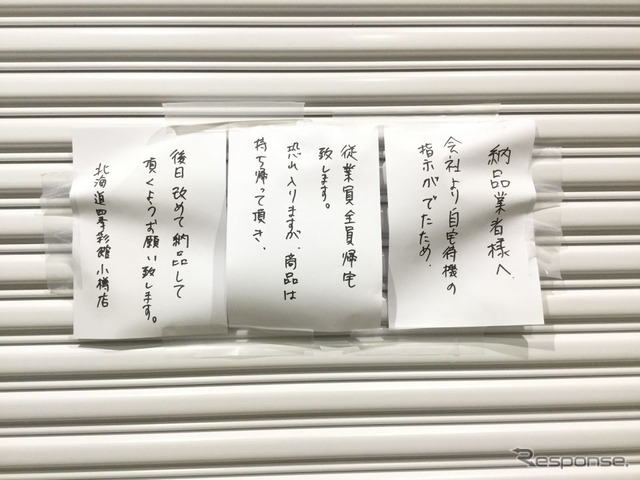 納品業者様へ.
会社より、自宅待機の
指示がでたため.
従業員全員帰宅
致します。
恐れ入りますが、商品は
持ち帰って頂き、
後日改めて納品して
頂くようお願い致します。
北海道四季彩館 小樽店
Response.